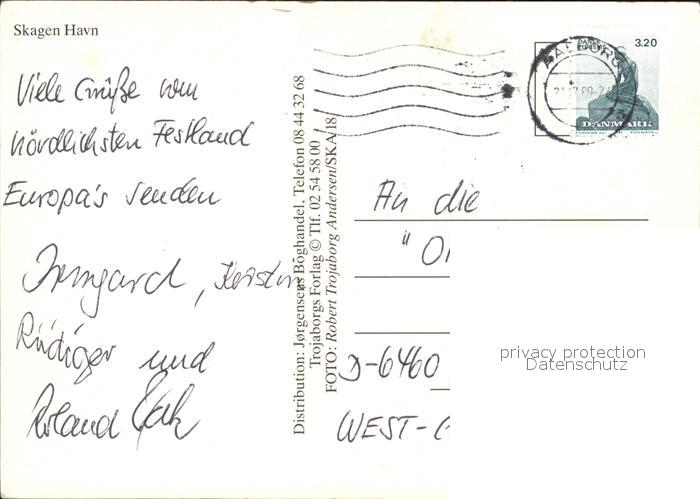 Skagen Havn
Viele Grüße vom
nördlichsten Festland
Europa's senden
Irmgard, Kerstin
Rüdiger und
Roland
Distribution: Jørgensens Boghandel, Telefon 08 44 32 68
Trojaborgs Forlag © Tlf. 02 54 58 00
FOTO: Robert Trojaborg Andersen/SKA/18
AALBORG
3.20
DANMARK
An die
D-6460
WEST-
privacy protection
Datenschutz